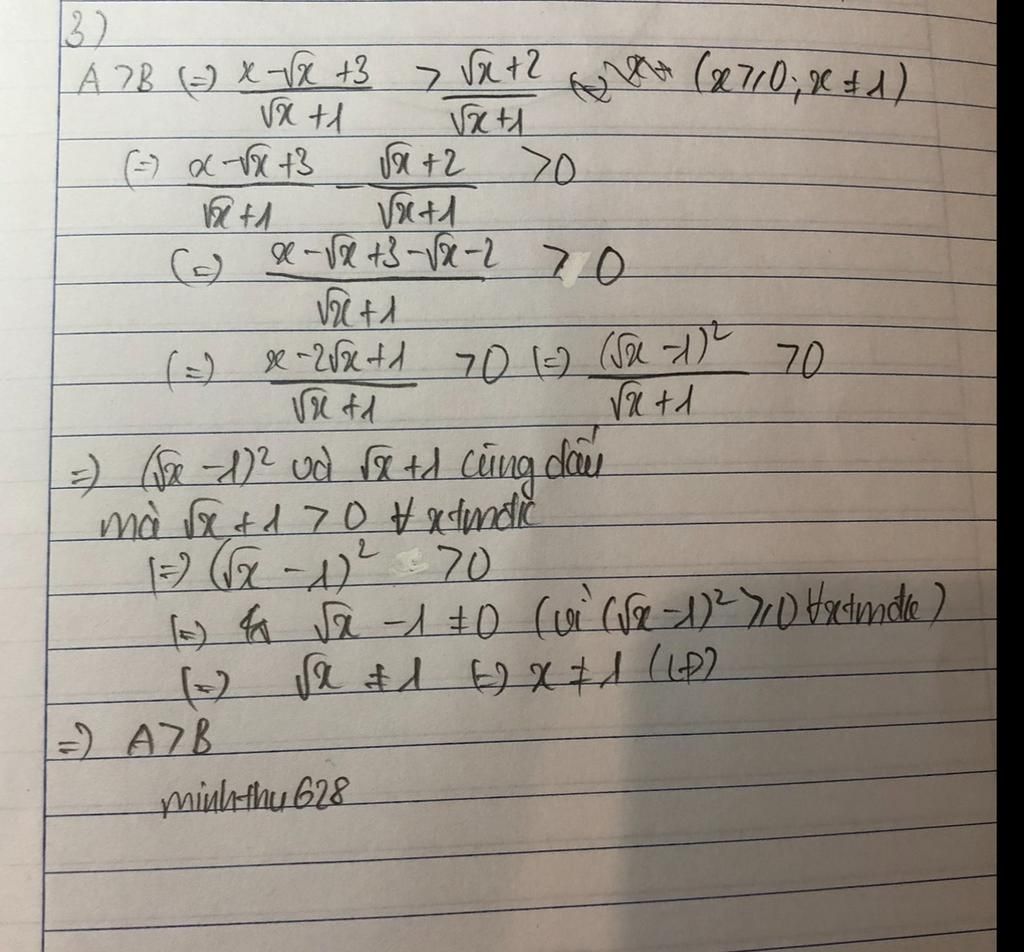 3)
A > B (=) x - √x + 3 / √x + 1 > √x + 2 / √x + 1 (x ≥ 0; x ≠ 1)
(=) x - √x + 3 / √x + 1 - √x + 2 / √x + 1 > 0
(=) x - √x + 3 - √x - 2 / √x + 1 > 0
(=) x - 2√x + 1 / √x + 1 > 0 (=) (√x - 1)² / √x + 1 > 0
=) (√x - 1)² và √x + 1 cùng dấu
mà √x + 1 > 0 ∀ x tmđk
(=) (√x - 1)² > 0
(=) √x - 1 ≠ 0 (vì (√x - 1)² ≥ 0 ∀x tmđk)
(=) √x ≠ 1 (=) x ≠ 1 (LĐ)
=) A > B
minhthu628